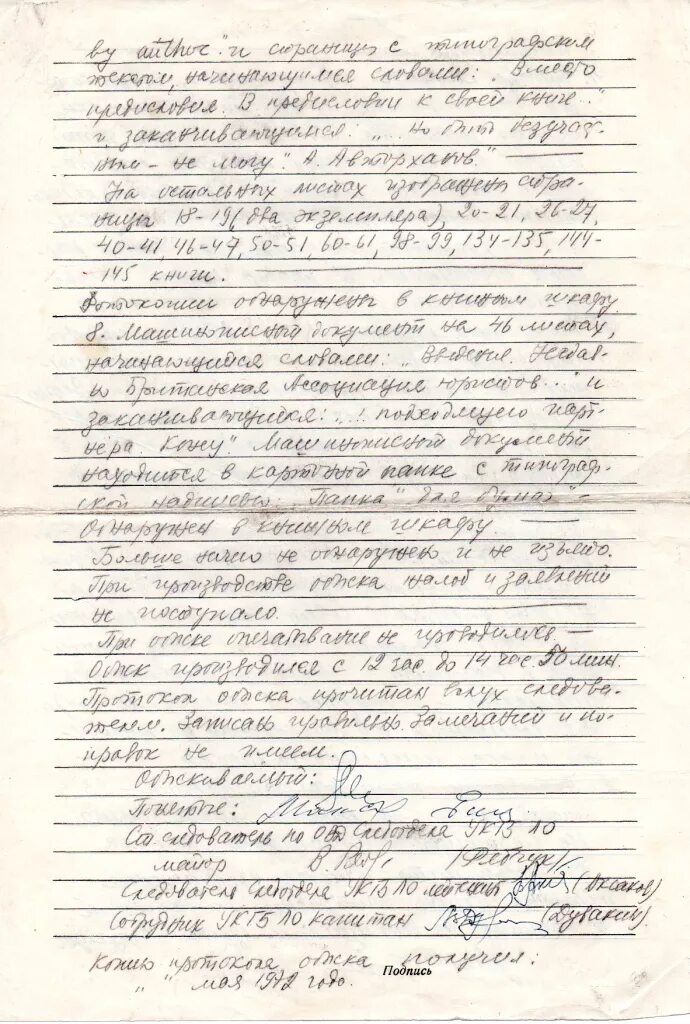 by author" и страницы с типографским
текстом, начинающимся словами: „Вместо
предисловия. В предисловии к своей книге..."
и заканчивающимся: „... но быть безучаст-
ным – не могу". А. Авторханов."
На остальных листах изображены стра-
ницы 18-19 (два экземпляра), 20-21, 26-27,
40-41, 46-47, 50-51, 60-61, 98-99, 134-135, 144-
145 книги.
Фотокопии обнаружены в книжном шкафу.
8. Машинописный документ на 46 листах,
начинающийся словами: „Введение. Недав-
но Британская Ассоциация юристов..." и
заканчивающийся: „... подходящего парт-
нёра. Конец". Машинописный документ
находится в картонной папке с типограф-
ской надписью: „Папка" для бумаг" -
Обнаружен в книжном шкафу.
Больше ничего не обнаружено и не изъято.
При производстве обыска жалоб и заявлений
не поступало.
При обыске опечатывание не проводилось.
Обыск производился с 12 час. до 14 час. 50 мин.
Протокол обыска прочитан вслух следова-
телем. Записано правильно. Замечаний и по-
правок не имеем.
Обыскиваемый:
Понятые:
Ст. следователь по ОВД Следотдела УКГБ ЛО
майор
Следователь Следотдела УКГБ ЛО лейтенант (Аксаков)
Сотрудник УКГБ ЛО капитан (Дувакин)
Копию протокола обыска получил:
Подпись
" " мая 1972 года.